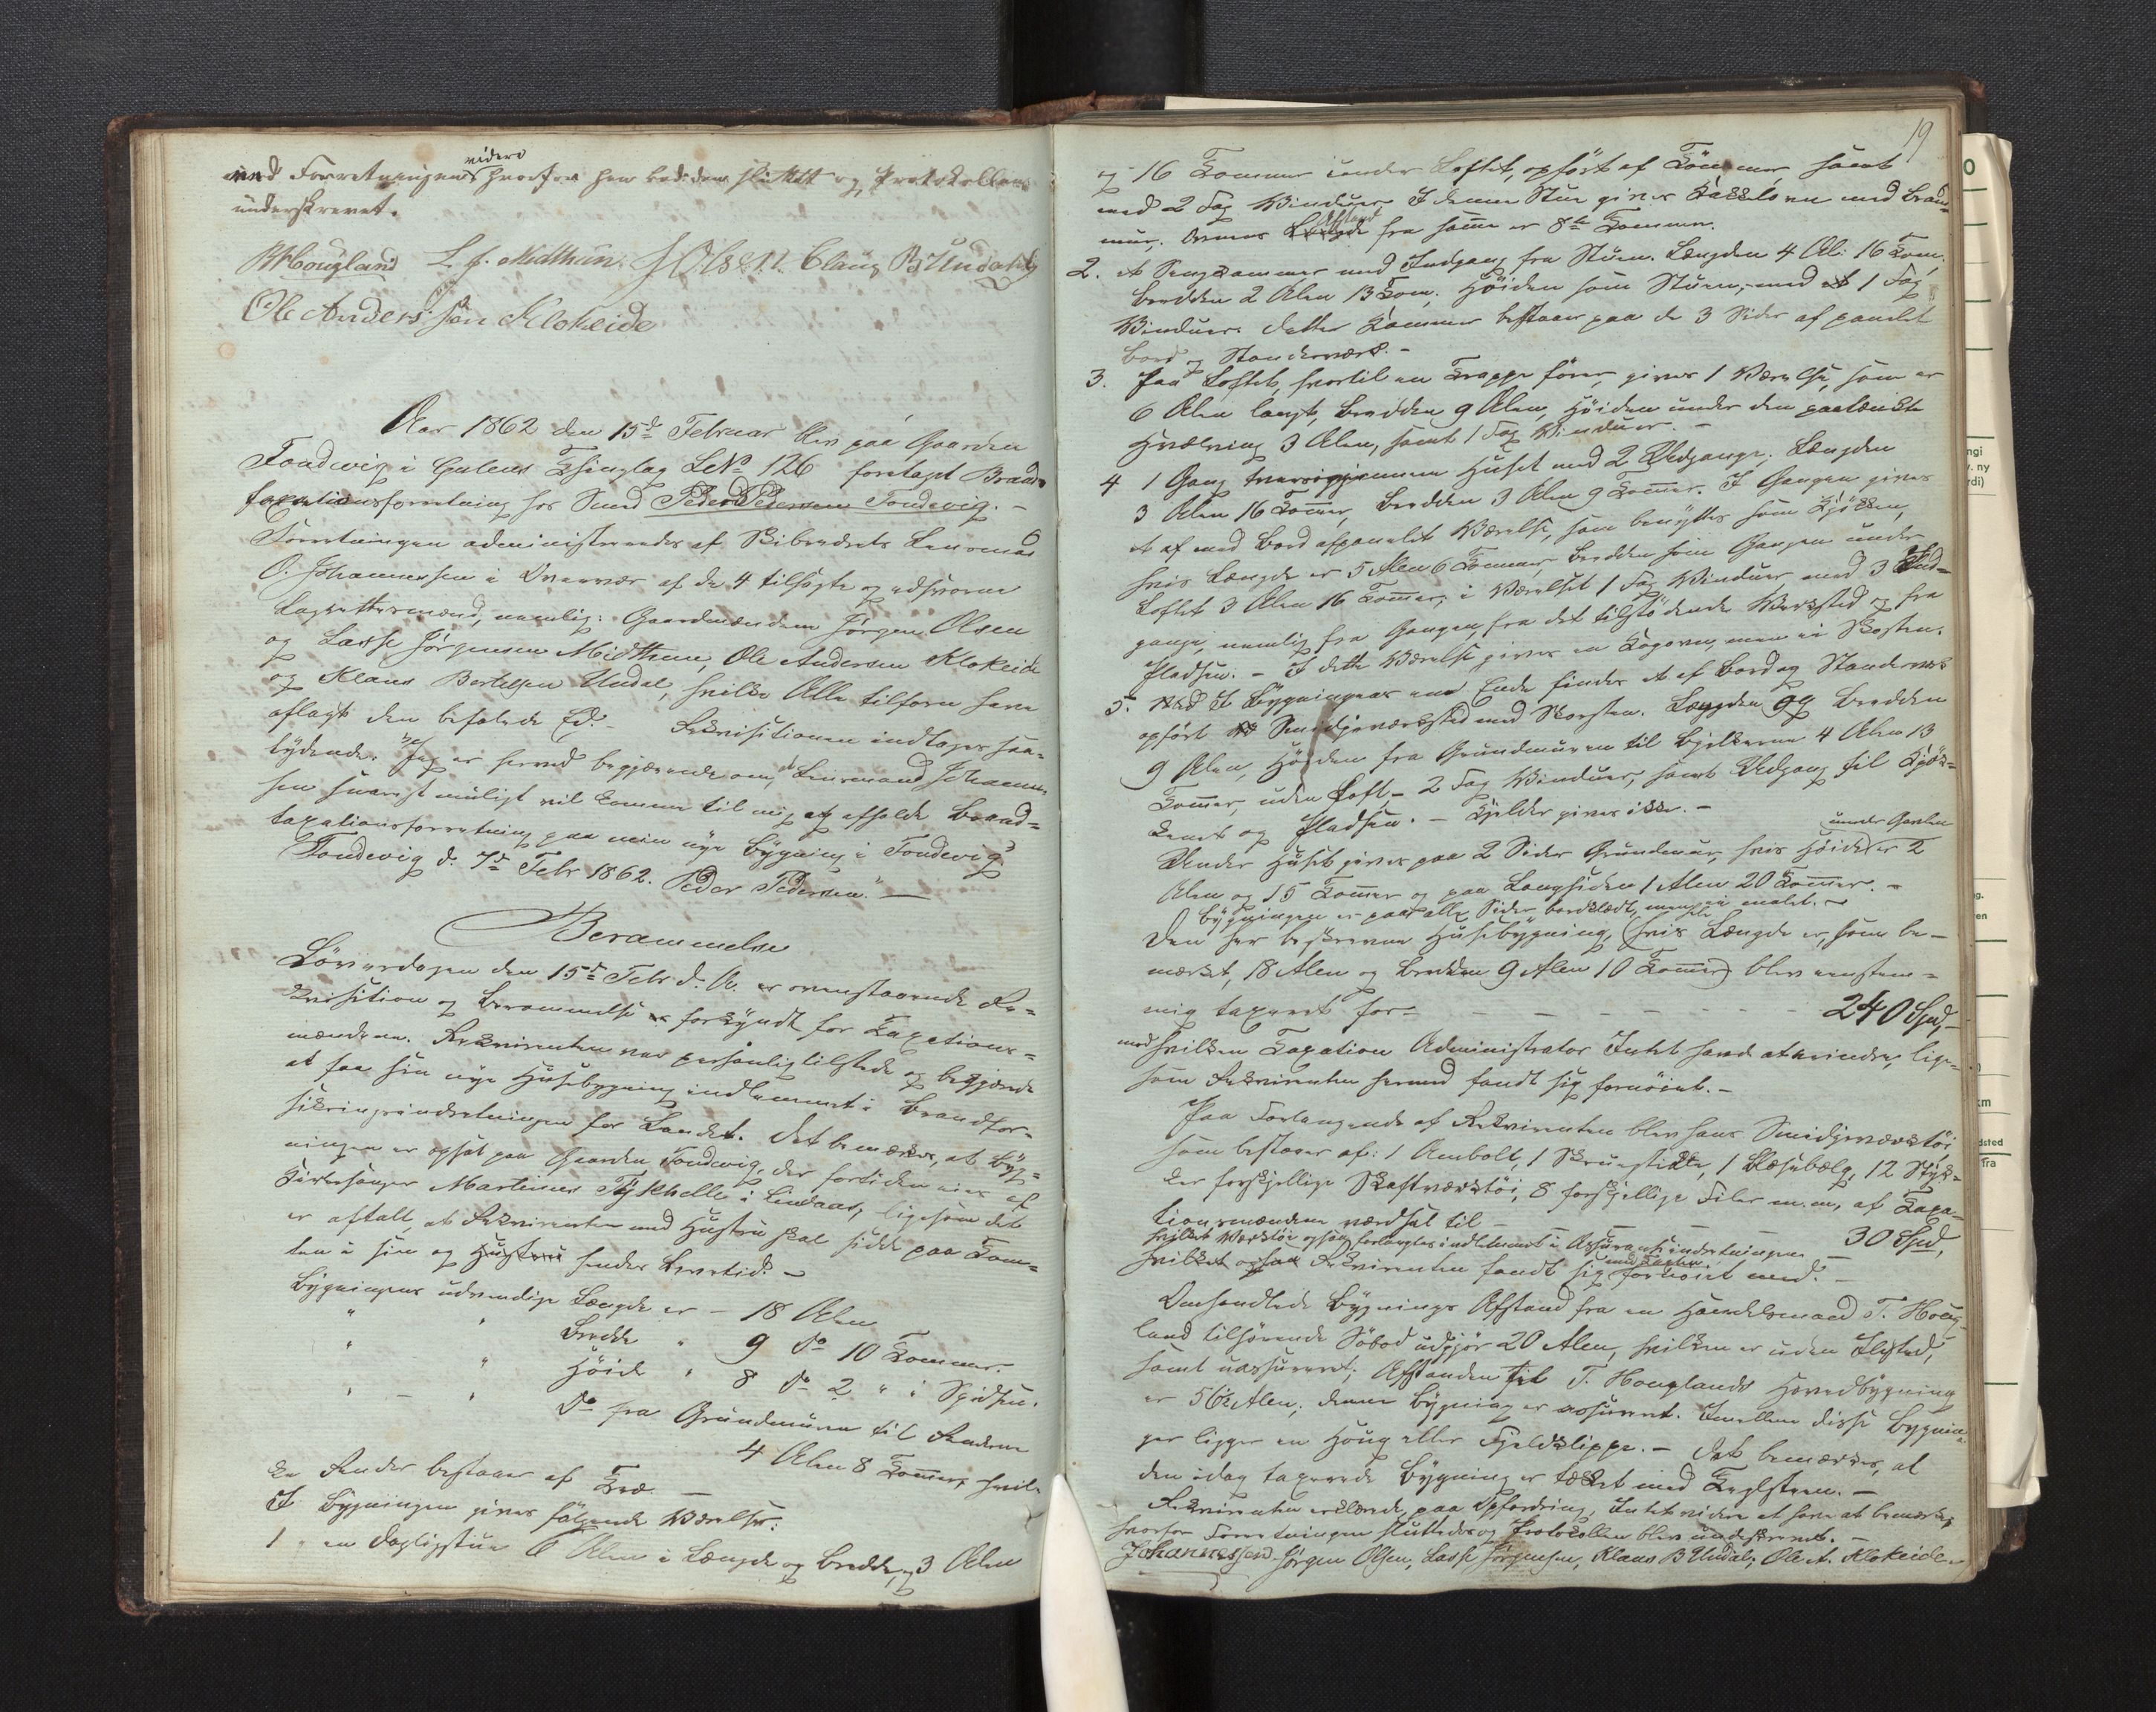 videre
med Forretningen hvorfor hen bedidom sluttet og Protokollen
underskrevet.
Hougland L. J. Midthun. J Olsen. Claus B Undahl
Ole Anders søn Klokeide
Aar 1862 den 15de Februar blev paa Gaarden
Fondevig i Gulens Thinglag LNo 126 foretaget Brand-
taxationsforretning hos Smed Peder Pedersen Fondevig. -
Forretningen administreredes af Bibredets Lensmand
O. Johannessen i Overvær af de 4 tilsagte og edsvorne
Lagrettesmænd, nemlig: Gaardmændene Jørgen Olsen
og Lasse Jørgensen Midthun, Ole Andersen Klokeide
og Klaus Bertelsen Undal, hvilke Alle tilforn have
aflagt den befalede Ed. Rekvisitionen indtages saa-
lydende: "Jeg er herved begjærende om, at Lensmand Johannes-
sen snarest muligt vil komme til mig at afholde Brand-
taxationsforretning paa min nye Bygning i Fondevig
Fondevig d. 7de Febr 1862. Peder Pedersen." —
Berammelse
Løverdagen den 15de Febr d. A. er ovenstaaende Re-
kvisition og Berammelse forkyndt for Taxations-
mændene. Rekvirenten var personlig tilstede og begjærede
at faa sin nye Husebygning indlemmet i Brandfor-
sikringsindretningen for Landet. Det bemærkes, at Byg-
ningen er opsat paa Gaarden Fondevig, der fortiden eies af
Kirkesanger Martinus Kjelle i Lindaas, ligesom det
er aftalt, at Rekvirenten med Hustru skal sidde paa Tom-
ten i sin og Hustrus hendes Levetid. -
Bygningens udvendige Længde er - 18 Alen
" " Bredde " 9 do 10 Tommer.
" " Høide " 8 do 2 " i Spidsen.
" - " do fra Grundmuren til Renderne
4 Alen 8 Tommer, hvil-
ke Render bestaaer af Træ. —
I Bygningen gives følgende Værelser:
1. en Dagligstue 6 Alen i Længde og Bredde, og 3 Alen
19
og 16 Tommer under Loftet, opført af Tømmer samt
med 2 Fag Vinduer. I denne Stue gives Kakkelovn med Brand-
Afstand
mur. Ovnens Længde fra samme er 8te Tommer.
2. et Sengkammer med Indgang fra Stuen. Længden 4 Al: 16 Tom,
Bredden 2 Alen 13 Tom; Høiden som Stuen, med et 1 Fag
Vinduer. Dette Kammer bestaar paa de 3 Sider af panelet
Bord og Standerværk. -
3. Paa Loftet, hvortil en Trappe fører, gives 1 Værelse, som er
6 Alen langt, Bredden 9 Alen, Høiden under den paatænkte
Hvælving 3 Alen, samt 1 Fag Vinduer. -
4 1 Gang tversigjennem Huset med 2 Udgange; Længden
3 Alen 16 Tommer, Bredden 3 Alen 9 Tommer. I Gangen gives
et af med Bord afpanelet Værelse, som benyttes som Kjøkken,
hvis Længde er 5 Alen 6 Tommer, Bredden som Gangen under
Loftet 3 Alen 16 Tommer; i Værelset 1 Fag Vinduer med 3 Ud-
gange, nemlig fra Gangen, fra det tilstødende Værksted og fra
Pladsen. - I dette Værelse gives en Kogeovn, men ei Skosten.
5. Ved I Bygningens ene Ende findes et af Bord og Standerværk
opført Smidjeværksted med Skorsten. Længden og Bredden
9 Alen, Høiden fra Grundmuren til Bjelkerne 4 Alen 13
Tommer, uden Loft - 2 Fag Vinduer, samt Udgang til Kjøk-
kenet og Pladsen. - Kjelder gives ikke. -
under Gavlen
Under Huset gives paa 2 Sider Grundmur, hvis Høide er 2
Alen og 15 Tommer og paa Langsiden 1 Alen 20 Tommer. -
Bygningen er paa alle Sider bordklædt, men ei malet. -
Den her beskrevne Husebygning, (hvis hele Længde er, som be-
mærket, 18 Alen og Bredden 9 Alen 10 Tommer) blev eenstem-
mig taxeret for: - - - - - - - 240 Spd,-
mod hvilken Taxation Administrator Intet havde at erindre, lige-
som Rekvirenten hermed fandt sig fornøiet. -
Paa Forlangende af Rekvirenten blev hans Smidjeværktøi
som bestaaer af: 1 Ambolt, 1 Skruestikke, 1 Blæsebælg, 12 Styk-
ker forskjellige Skaftværktøi, 8 forskjellige Filer m.m, af Taxa-
tionsmændene værdsat til - - - - 30 Spd,
hvilket Værktøi ogsaa forlangtes indlemmet i Assuranceindretningen
med Taxten
hvilket ogsaa Rekvirenten fandt sig fornøiet med. -
Omhandlede Bygnings Afstand fra en Handelsmand T. Houg-
land tilhørende Søbod udgjør 20 Alen, hvilken er uden Ildsted,
samt uassureret; Afstanden til T. Houglands Hovedbygning
er 56½ Alen; denne Bygning er assureret. Imellem disse Bygnin-
ger ligger en Houg eller Fjeldklippe. - Det bemærkes, at
den idag taxerede Bygning er tækket med Teglsteen. -
Rekvirenten erklærede, paa Opfordring, Intet videre at have at bemærke,
hvorfor Forretningen sluttedes og Protokollen blev underskrevet. -
Johannessen. Jørgen Olsen, Lasse Jørgensen, Klaus B Undal, Ole A. Klokeide.